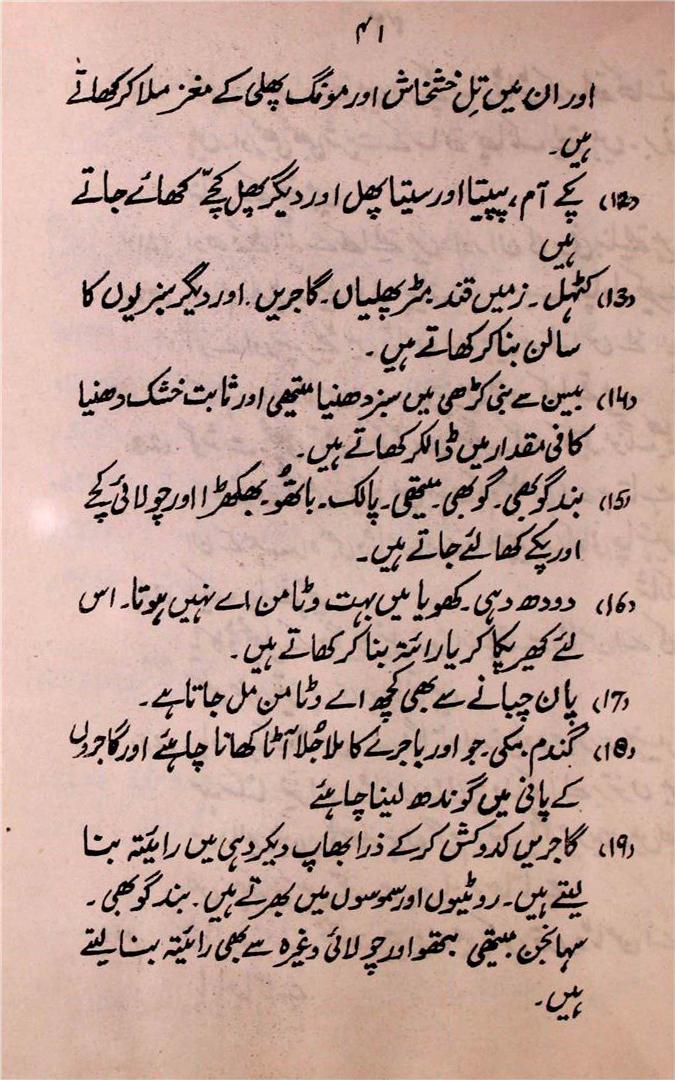 ۴۱
اور ان میں تِل خشخاش اور مونگ پھلی کے مغز ملا کر کھاتے
ہیں۔
(12) پکے آم، پپیتا اور سیتا پھل اور دیگر پھل کچے کھائے جاتے
ہیں
(13) کٹہل۔ زمیں قند۔ مٹر پھلیاں۔ گاجریں۔ اور دیگر سبزیوں کا
سالن بنا کر کھاتے ہیں۔
(14) بیسن سے بنی کڑھی میں سبز دھنیا میتھی اور ثابت خشک دھنیا
کافی مقدار میں ڈالکر کھاتے ہیں۔
(15) بند گوبھی۔ گوبھی۔ میتھی۔ پالک۔ باتھُو۔ بھکھڑا اور چولائی کچے
اور پکے کھا لئے جاتے ہیں۔
(16) دودھ دہی۔ کھویا میں بہت وٹامن اے نہیں ہوتا۔ اس
لئے کھیر پکا کر یا رائتہ بنا کر کھاتے ہیں۔
(17) پان چبانے سے بھی کچھ اے وٹامن مل جاتا ہے۔
(18) گندم۔ مکی۔ جو اور باجرے کا ملا جُلا آٹا کھانا چاہئے اور گاجروں
کے پانی میں گوندھ لینا چاہئے
(19) گاجریں کدوکش کر کے ذرا بھاپ دیکر دہی میں رائیتہ بنا
لیتے ہیں۔ روٹیوں اور سموسوں میں بھرتے ہیں۔ بند گوبھی۔
سہانجن میتھی بتھو اور چولائی وغیرہ سے بھی رائیتہ بنا لیتے
ہیں۔